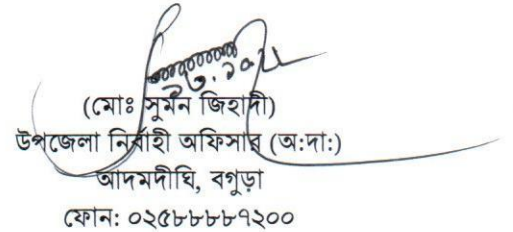 (মোঃ সুমন জিহাদী)
উপজেলা নির্বাহী অফিসার (অ:দা:)
আদমদীঘি, বগুড়া
ফোন: ০২৫৮৮৮৮৭২০০